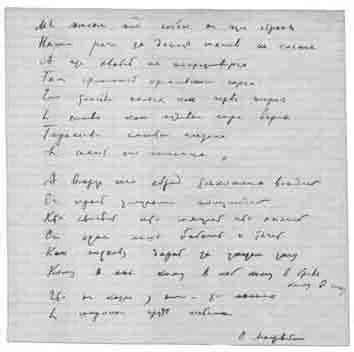 Мы живем под собою не чуя страны
Наши речи за десять шагов не слышны
А где хватит на полразговорца
Там припомнят кремлевского горца
Его толстые пальцы как черви жирны
И слова как пудовые гири верны
Тараканьи смеются
И сияют его голенища
А вокруг него сброд тонкошеих вождей
Он играет услугами полулюдей
Кто свистит кто мяучит кто хнычет
Он один лишь бабачит и тычет
Как подкову дарит за указом указ
Кому в пах кому в лоб кому в бровь
кому в глаз
Что ни казнь у него – то малина
И широкая грудь осетина
О. Мандельштам